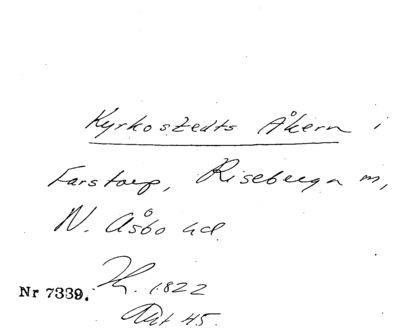 Kyrkostedts Åkern i
Farstorp, Riseberga m,
N. Åsbo hd.
Nr 7339.
1822
Akt 45.